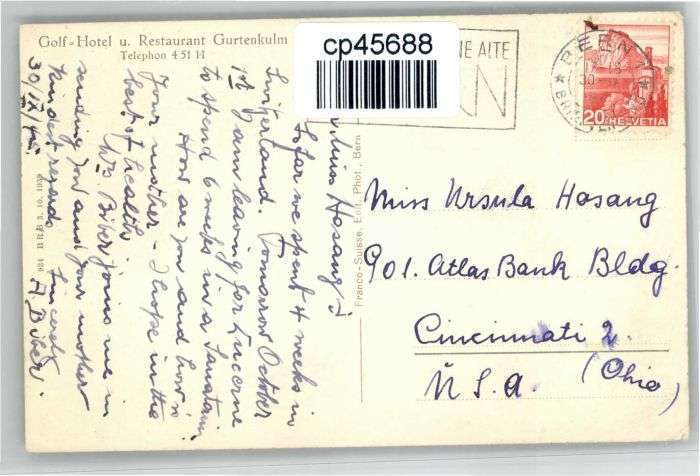 Golf-Hotel u. Restaurant Gurtenkulm
Telephon 4 51 11
cp45688
NE ALTE
BERN
20 HELVETIA
Miss Hosang
So far we spent 4 weeks in
Switzerland. Tomorrow October
1st I am leaving for Lucerne
to spend 6 weeks in a Sanatarium
How are you and how is
Your mother - I hope in the
best of health.
Mrs. Biber joins me in
sending you and your mother
kindest regards
Sincerely
A. Biber.
30/IX/
934 BRB 3. 10. 1939
Franco-Suisse, Edit. Phot., Bern
Miss Ursula Hosang
901. Atlas Bank Bldg.
Cincinnati 2.
(Ohio)
U.S.A.